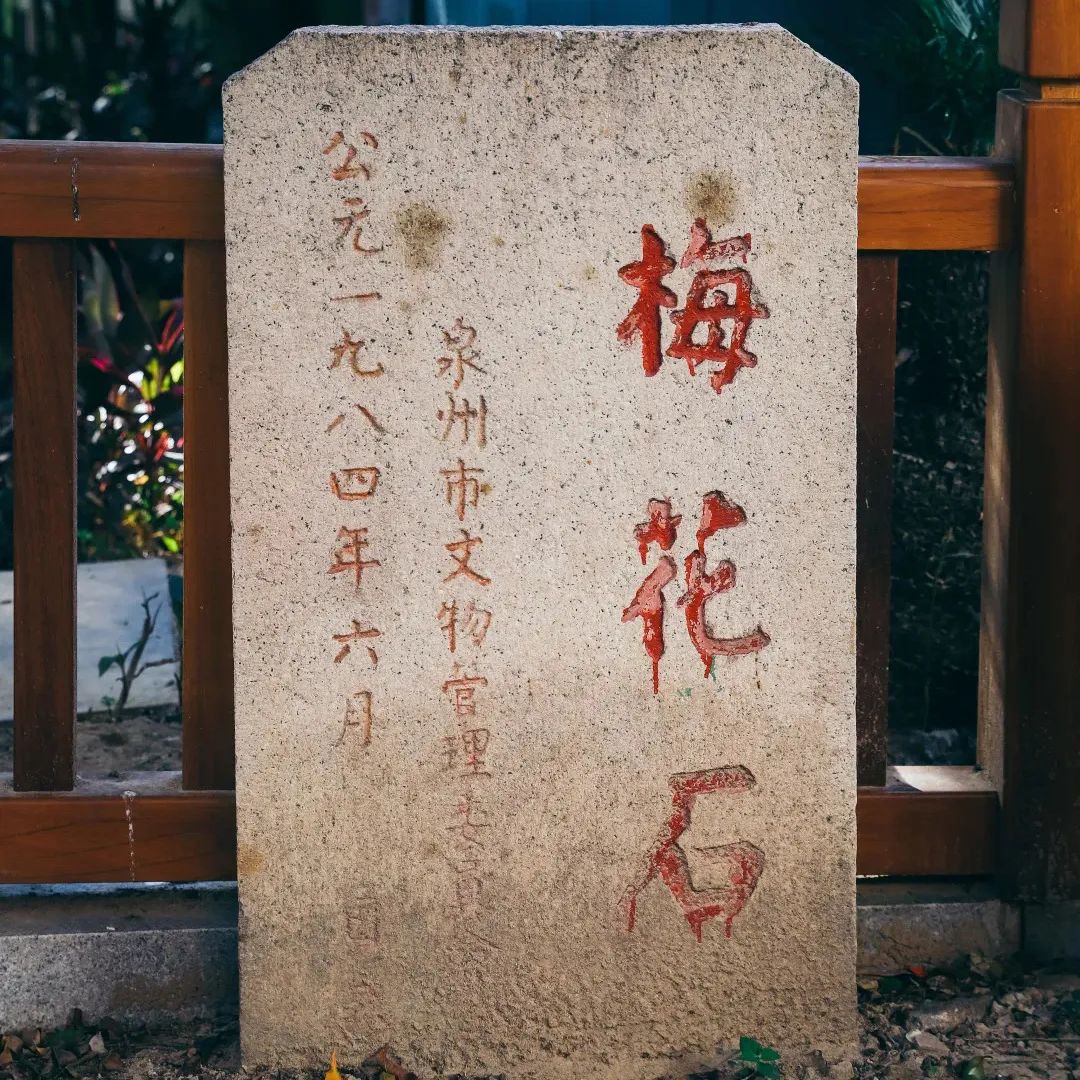 梅花石
泉州市文物管理委員会
公元一九八四年六月